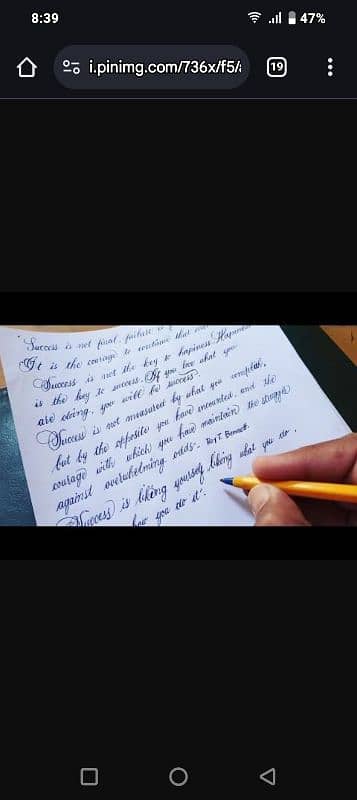 8:39
47%
i.pinimg.com/736x/f5/
19
Success is not final, failure is
It is the courage to continue that
Success is not the key to hapiness. Happiness
is the key to success. If you love what you
are doing, you will be success".
Success is not measured by what you complish,
but by the opposite you have incounted, and the
courage with which you have maintain the struggle
against overwhelming odds.
Success is liking yourself, liking what you do,
how you do it".